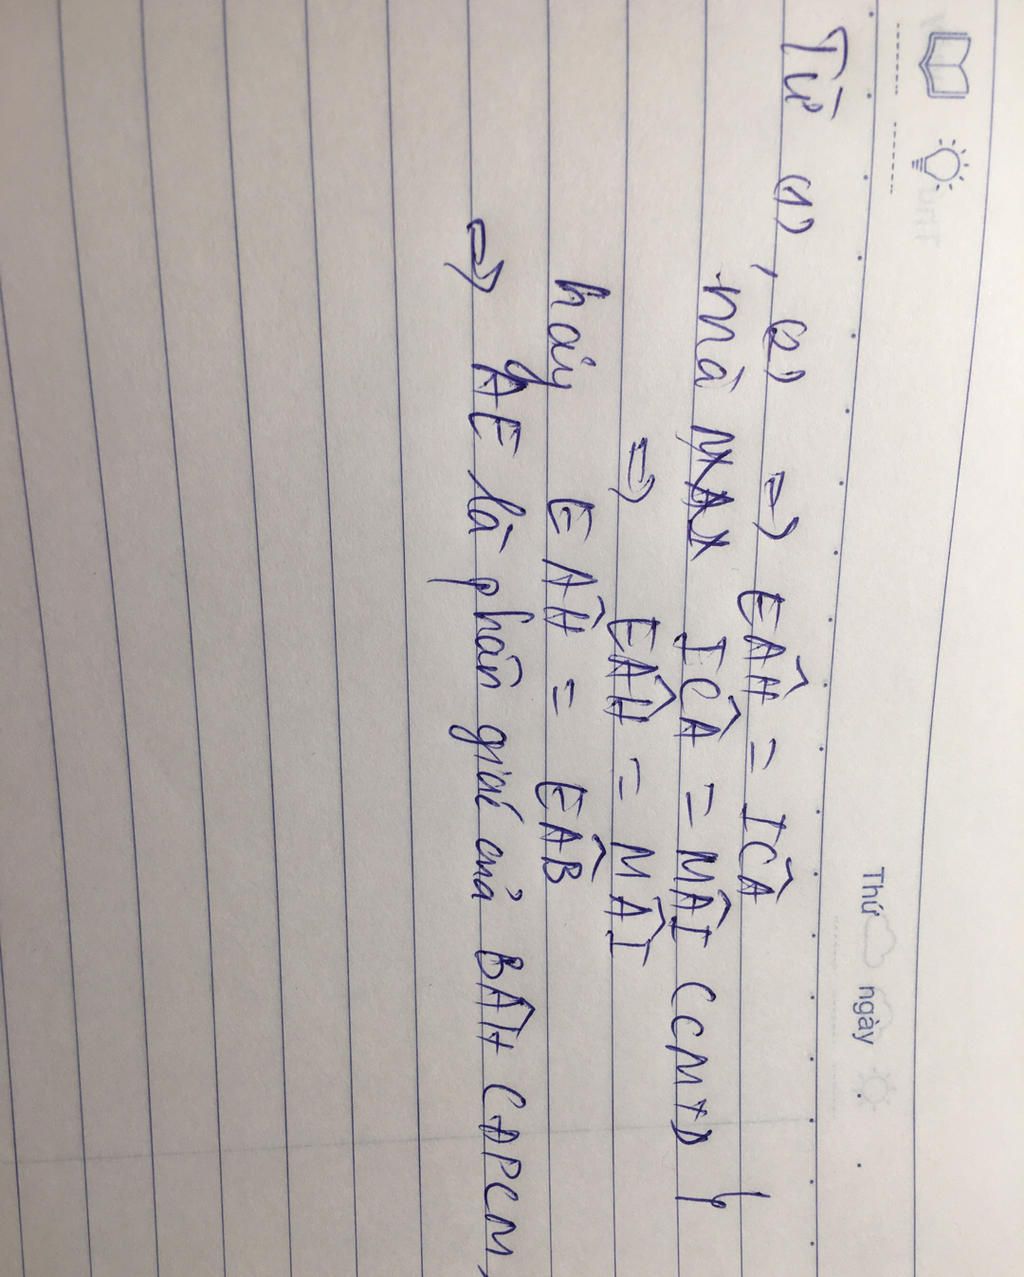 Thứ ngày
Từ (1), (2) => EÂH = ICÂ
mà ICÂ = MÂI (CMTD)
=> EÂH = MÂI
hay EÂH = EÂB
=> AE là phân giác của BÂH (ĐPCM)